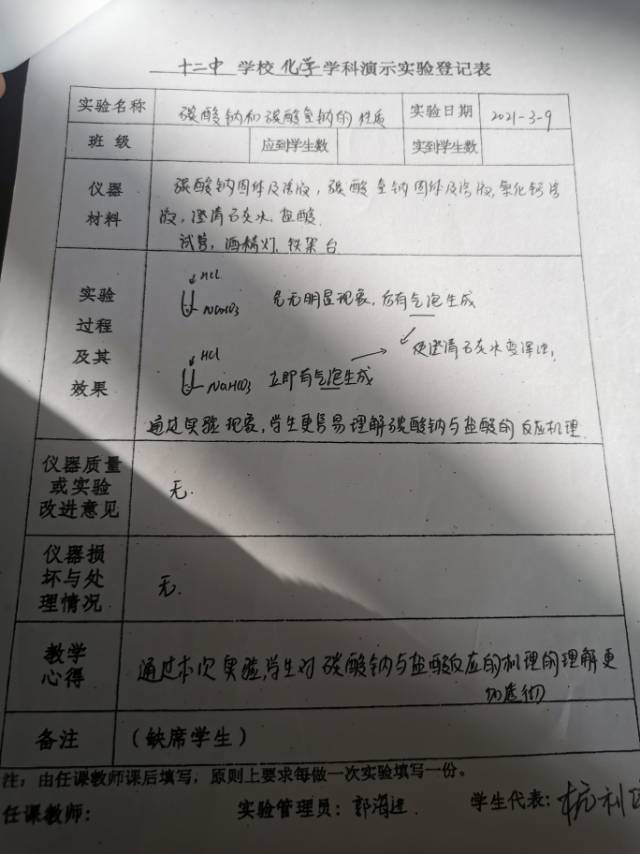 十二中 学校 化学 学科演示实验登记表
实验名称 碳酸钠和碳酸氢钠的性质 实验日期 2021-3-9
班 级 应到学生数 实到学生数
仪器 碳酸钠固体及溶液，碳酸氢钠固体及溶液，氯化钙溶
材料 液，澄清石灰水，盐酸
试管，酒精灯，铁架台
↓HCl
实验 NaCO3 先无明显现象，后有气泡生成
过程 使澄清石灰水变浑浊，
及其 ↓HCl
效果 NaHCO3 立即有气泡生成
通过实验现象，学生更容易理解碳酸钠与盐酸的反应机理
仪器质量
或实验 无.
改进意见
仪器损
坏与处 无.
理情况
教学 通过本次实验，学生对碳酸钠与盐酸反应的机理的理解更
心得 加透彻
备注 （缺席学生）
注：由任课教师课后填写，原则上要求每做一次实验填写一份。
任课教师： 实验管理员：郭海 学生代表：杭利